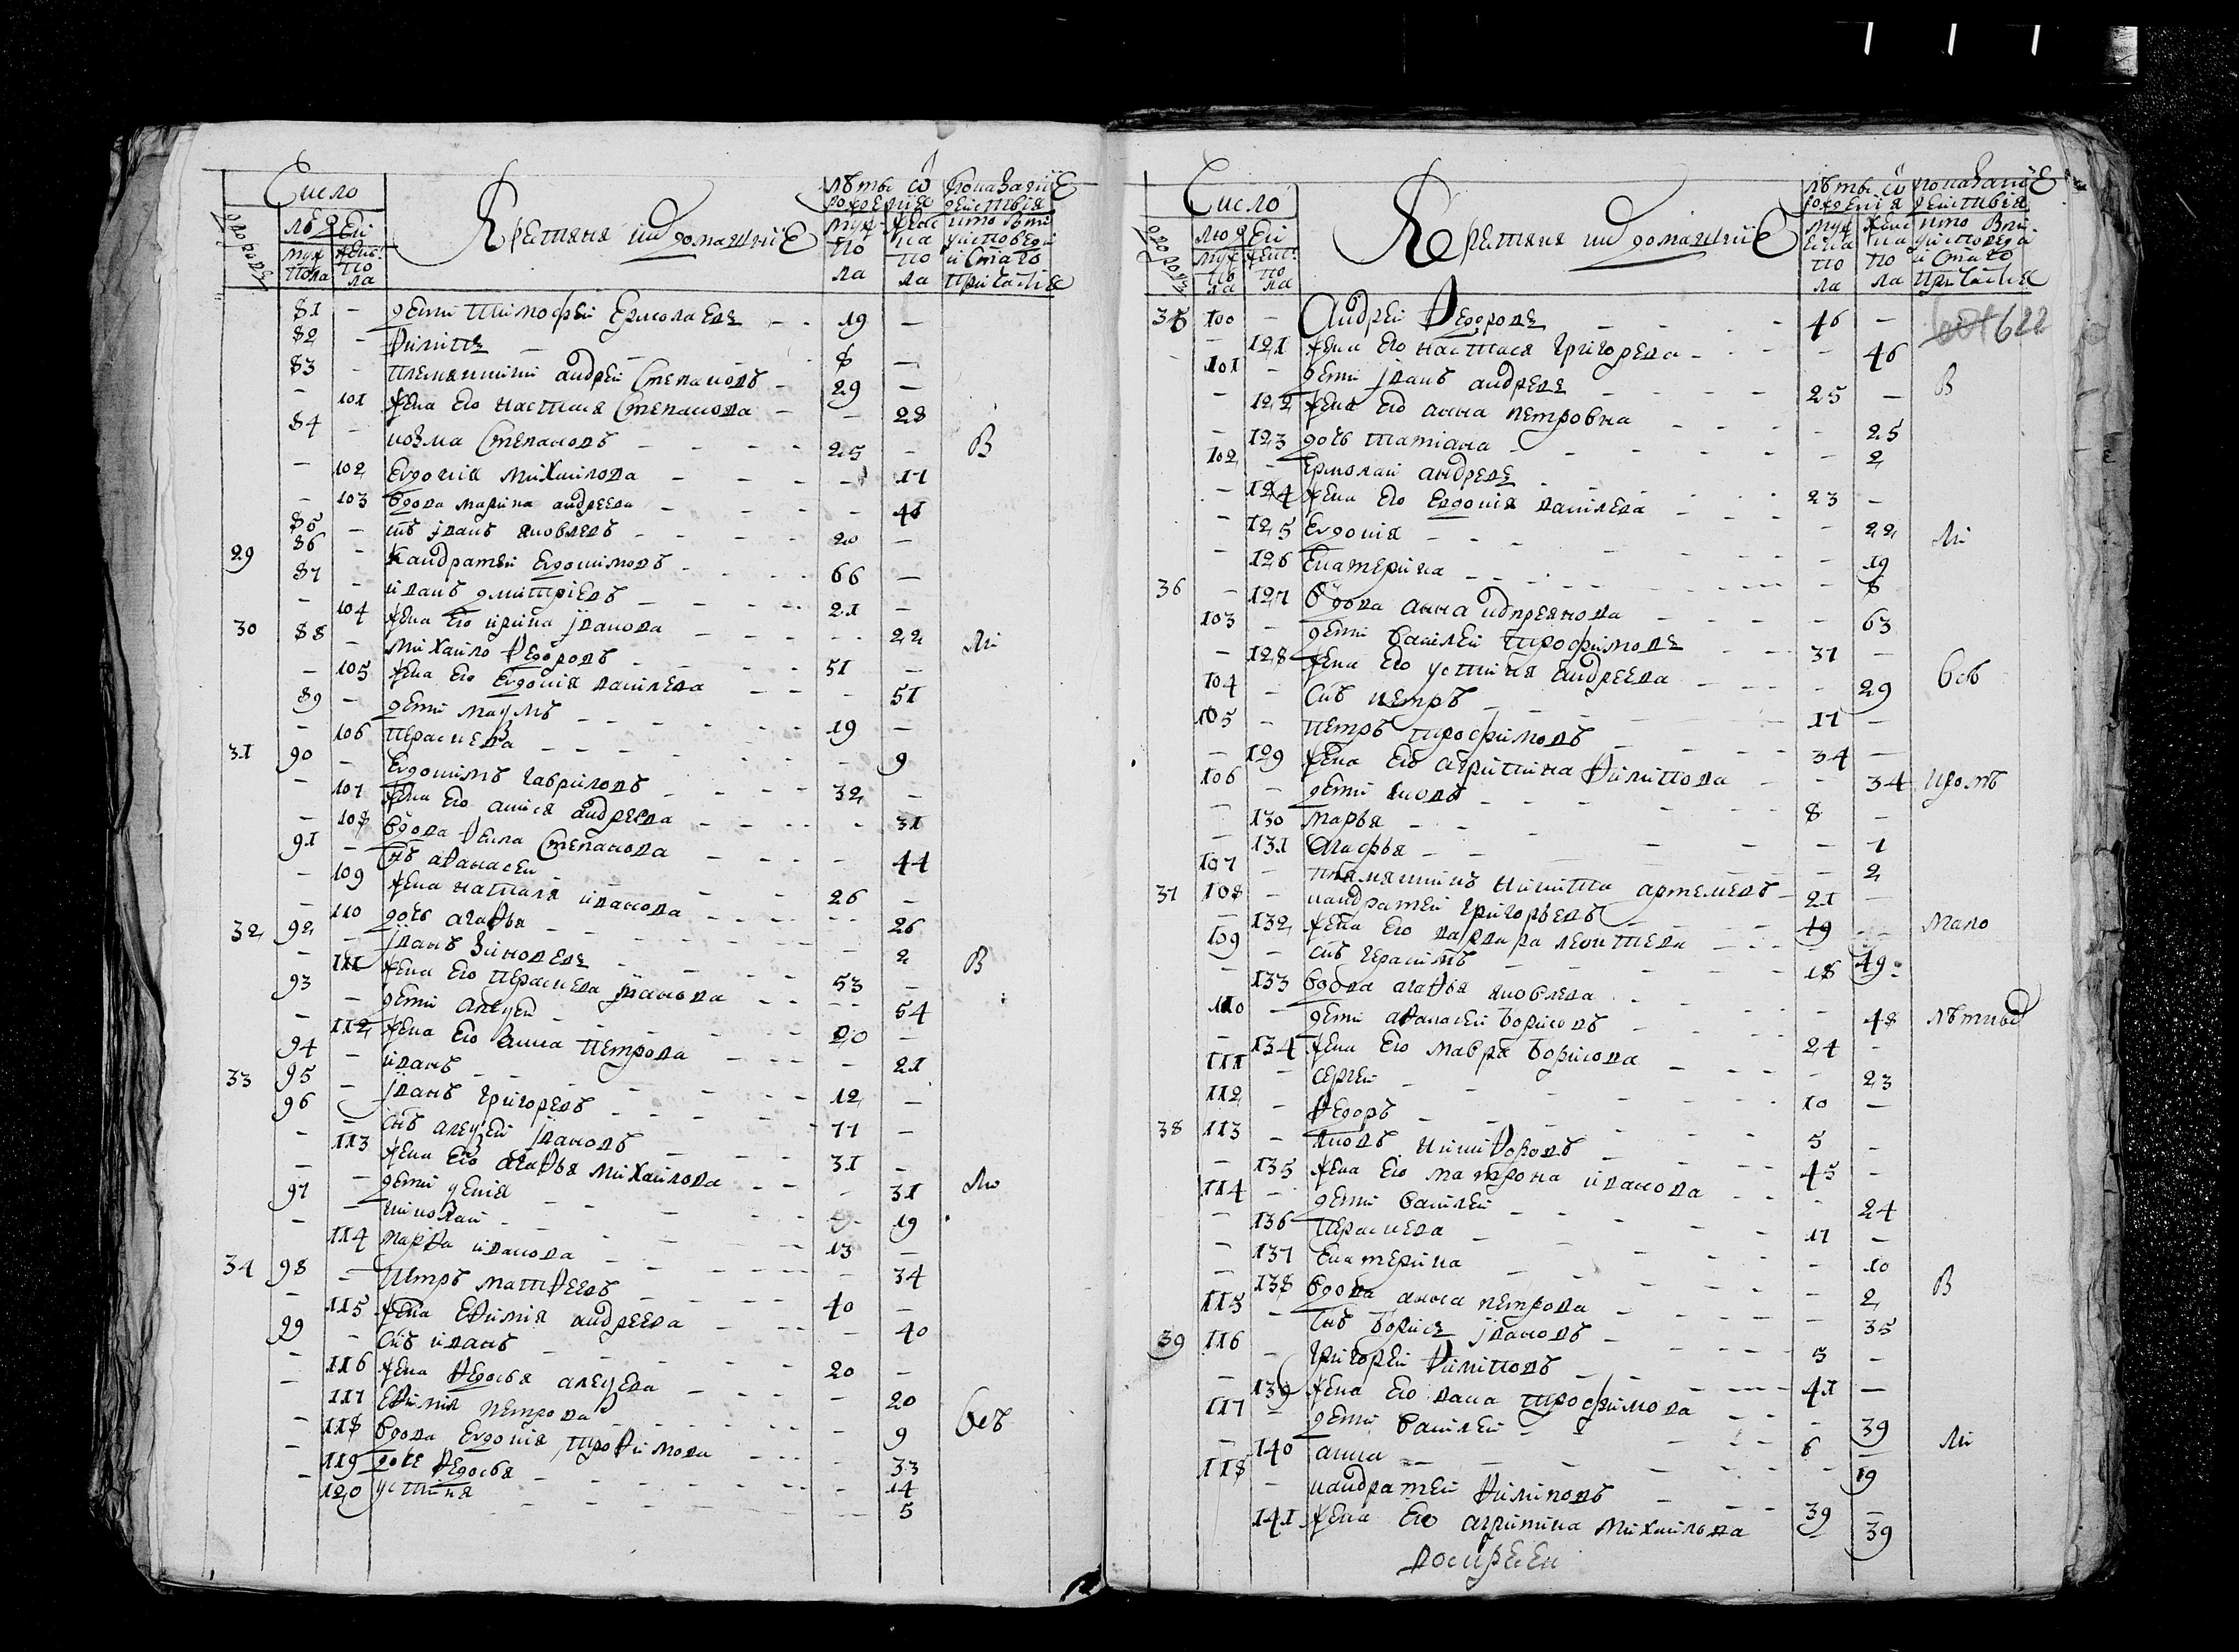 Число
Крестьяня и их домашние
лѣты ѿ рождения
показание действия
людей
муж пола
женс: пола
муж пола
женска пола
кто был у исповеди и святаго причастия
81 – дети Тимофей Ермолаевъ – 19 –
82 – Филиппъ – 8 –
83 – племянники Андрей Степановъ – 29 –
– 101 жена его Настасия Степанова – 28
84 – Козма Степановъ – 25 – В
– 102 Евдокия Михаилова – 17
– 103 вдова Марина Андреева – 41
85 – сынъ Іванъ Яковлевъ – 20 –
29 86 – Кандратей Евдокимовъ – 66 –
87 – Иванъ Дмитріевъ – 21 –
– 104 жена его Ирина Іванова – 22
30 88 – Михаило Федоровъ – 51 – ли
– 105 жена его Евдокия Василева – 51
89 – дети Наумъ – 19 –
– 106 Пераскева – 9
31 90 – Евдокимъ Гавриловъ – 32 –
– 107 жена его Анися Андреева – 31
– 108 вдова Фекла Степанова – 44
91 – сынъ Афанасей – 26 –
– 109 жена Наталя Иванова – 26
– 110 дочь Агафья – 2
32 92 – Іванъ Зиновевъ – 53 – В
– 111 жена его Пераскева Іванова – 54
93 – дети Алеѯей – 20 –
– 112 жена его Анна Петрова – 21
94 – Иванъ – 12 –
33 95 – Іванъ Григоревъ – 77 –
96 – сынъ Алеѯей Івановъ – 31 –
– 113 жена его Агафья Михаилова – 31
– дети – 19
97 – Николай – 13 –
– 114 Марфа Иванова – 34
34 98 – Петръ Матфеевъ – 40 –
– 115 жена Ефимия Андреева – 40
99 – сынъ Иванъ – 20 –
– 116 жена Федосья Алеѯева – 20
– 117 Ефимия Петрова – 9 всѣ
– 118 вдова Евдокия Трофимова – 33
– 119 дочь Федосья – 14
– 120 Устиния – 5
Число
Крестьяня и их домашние
лѣты ѿ рождения
показание действия
людей
муж пола
женс: пола
мужеска пола
женска пола
кто был у исповеди и святаго причастия
622
35 100 – Андрей Федоровъ – 46 –
– 121 жена его Настася Григорева – 46
101 – дети Іванъ Андреевъ – 25 – В
– 122 жена его Анна Петровна – 25
– 123 дочь Татиана – 2
102 – Ермолай Андреевъ – 23 –
– 124 жена его Евдокия Василева – 22 ли
– 125 Евдокия – 19
– 126 Екатерина – 8
36 – 127 вдова Анна Кипреянова – 63
103 – дети Василей Трофимовъ – 31 –
– 128 жена его Устиния Андреева – 29 всѣ
104 – сынъ Петръ – 11 –
105 – Петръ Трофимовъ – 34 –
– 129 жена его Агрипина Филипова – 34 кромѣ
106 – дети Яковъ – 8 –
– 130 Марья – 7
– 131 Агафья – 2
107 – племянникъ Никита Артемевъ – 21 –
37 108 – Кандратей Григорьевъ – 49 – мало
– 132 жена его Варвара Леонтева – 49
109 – сынъ Герасимъ – 18 –
– 133 вдова Агафья Яковлева – 48 лѣтныхъ
110 – дети Афанасей Борисовъ – 24 –
– 134 жена его Мавра Борисова – 23
111 – Сергей – 10 –
112 – Федоръ – 5 –
38 113 – Яковъ Никифоровъ – 45 –
– 135 жена его Матрона Иванова – 24
114 – дети Василей – 11 –
– 136 Пераскева – 10
– 137 Екатерина – 2 В
– 138 вдова Анна Петрова – 35
115 – сынъ Борисъ Івановъ – 5 –
39 116 – Григорей Филиповъ – 41 –
– 139 жена его Васа Трофимова – 39
117 – дети Василей – 6 – ли
– 140 Анна – 19
118 – Кандратей Филиповъ – 39 –
– 141 жена его Агрипина Михаилова – 39